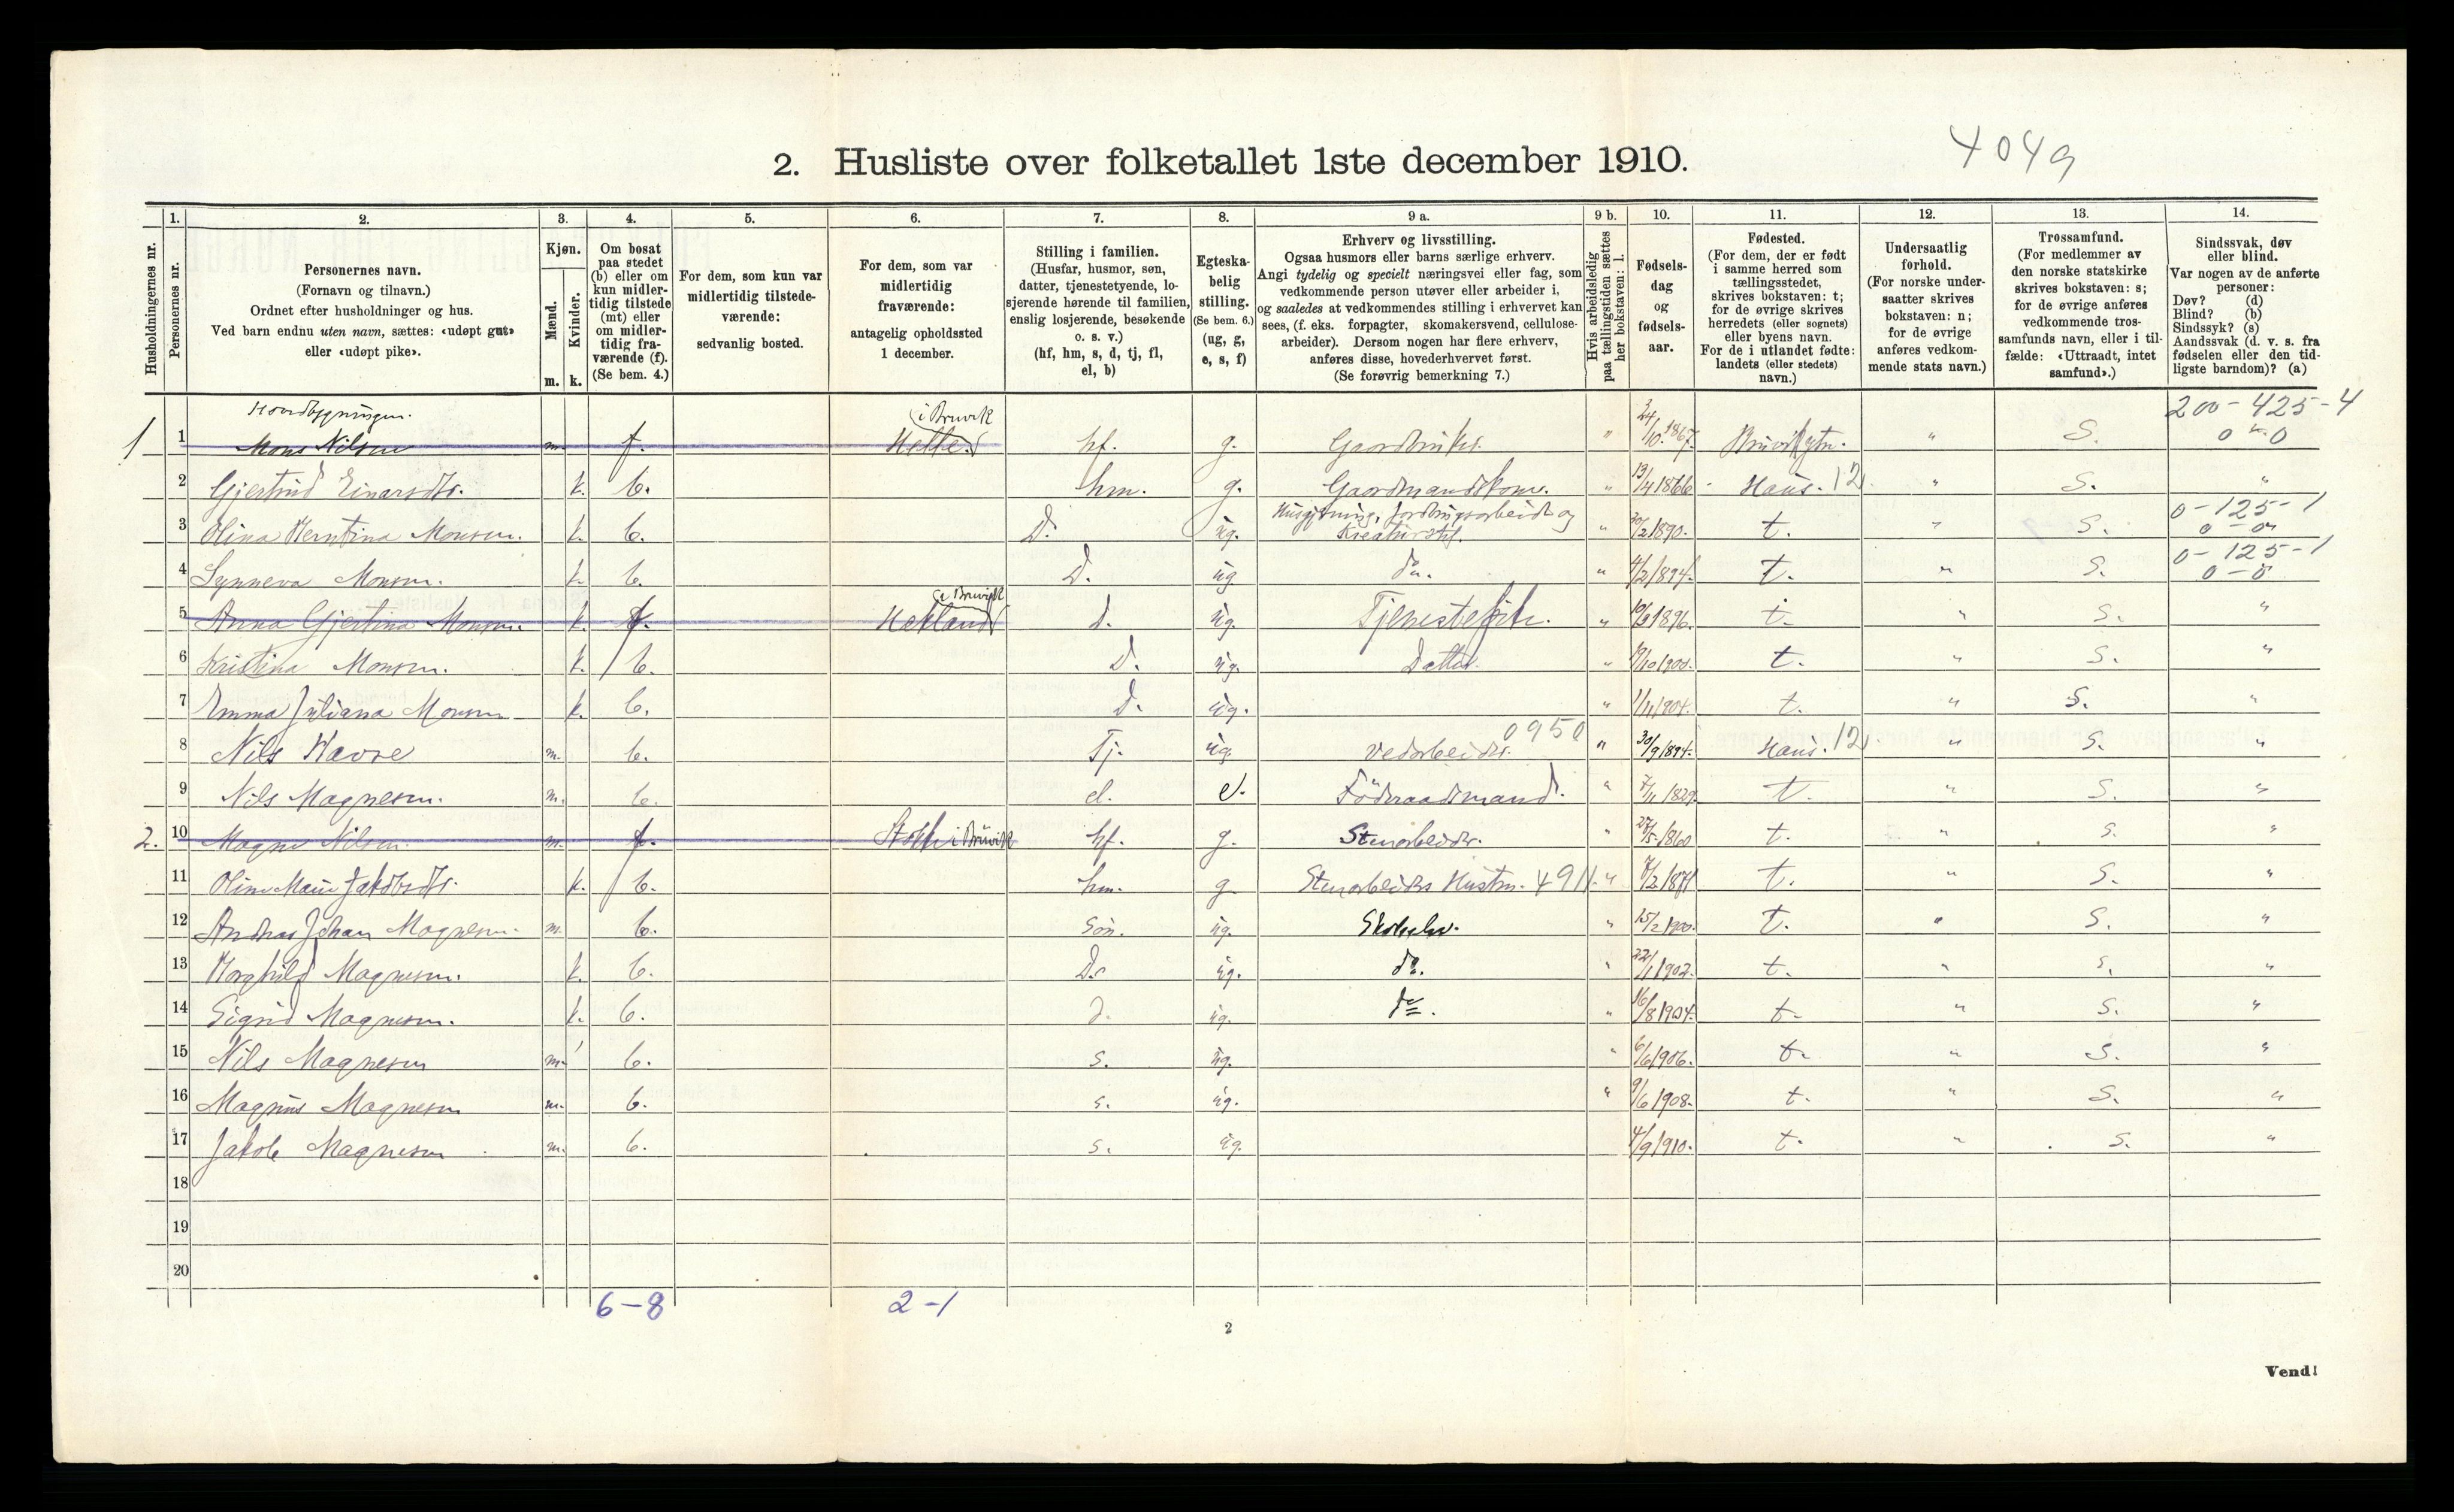 4049
2. Husliste over folketallet 1ste december 1910.
Husholdningernes nr.
1. Personernes nr.
2. Personernes navn.
(Fornavn og tilnavn.)
Ordnet efter husholdninger og hus.
Ved barn endnu uten navn, sættes: «udøpt gut»
eller «udøpt pike».
3. Kjøn.
Mænd. m.
Kvinder. k.
4. Om bosat
paa stedet
(b) eller om
kun midler-
tidig tilstede
(mt) eller
om midler-
tidig fra-
værende (f).
(Se bem. 4.)
5. For dem, som kun var
midlertidig tilstede-
værende:
sedvanlig bosted.
6. For dem, som var
midlertidig
fraværende:
antagelig opholdssted
1 december.
7. Stilling i familien.
(Husfar, husmor, søn,
datter, tjenestetyende, lo-
sjerende hørende til familien,
enslig losjerende, besøkende
o. s. v.)
(hf, hm, s, d, tj, fl,
el, b)
8. Egteska-
belig
stilling.
(Se bem. 6.)
(ug, g,
e, s, f)
9 a. Erhverv og livsstilling.
Ogsaa husmors eller barns særlige erhverv.
Angi tydelig og specielt næringsvei eller fag, som
vedkommende person utøver eller arbeider i,
og saaledes at vedkommendes stilling i erhvervet kan
sees, (f. eks. forpagter, skomakersvend, cellulose-
arbeider). Dersom nogen har flere erhverv,
anføres disse, hovederhvervet først.
(Se forøvrig bemerkning 7.)
9 b. Hvis arbeidsledig
paa tællingstiden sættes
her bokstaven: l.
10. Fødsels-
dag
og
fødsels-
aar.
11. Fødested.
(For dem, der er født
i samme herred som
tællingsstedet,
skrives bokstaven: t;
for de øvrige skrives
herredets (eller sognets)
eller byens navn.
For de i utlandet fødte:
landets (eller stedets)
navn.)
12. Undersaatlig
forhold.
(For norske under-
saatter skrives
bokstaven: n;
for de øvrige
anføres vedkom-
mende stats navn.)
13. Trossamfund.
(For medlemmer av
den norske statskirke
skrives bokstaven: s;
for de øvrige anføres
vedkommende tros-
samfunds navn, eller i til-
fælde: «Uttraadt, intet
samfund».)
14. Sindssvak, døv
eller blind.
Var nogen av de anførte
personer:
Døv? (d)
Blind? (b)
Sindssyk? (s)
Aandssvak (d. v. s. fra
fødselen eller den tid-
ligste barndom)? (a)
Hovdbygningen. i Bruvik 200-425-4
1 1 Mons Nilsen m. f. Helle hf. g. Gaardbruker. " 24/10 1867. " S. 0-0
2 Gjertrud Einarsdtr. k. b. hm. g. Gaardmandskone. " 13/4 1866 Haus. 12 " S. "
Husgjerning, jordbrugsarbeide og 0-125-1
3 Olina Berntina Monsen. k. b. D. ug. Kreaturstel. " 20/2 1890. t. " S. 0-0
0-125-1
4 Synneva Monsen. k. b. D. ug do. " 4/2 1894. t. " S. 0-0
i Bruvik
5 Anna Gjertina Monsen k. f. Hakland d. ug. Tjenestepike. " 10/9 1896. t. " S. "
6 Kristina Monsen. k. b. D. ug. Datter " 19/10 1900. t. " S. "
7 Emma Juliana Monsen k. b. d. ug. " 1/11 1904. t. " S. "
8 Nils Havre m. b. Tj. ug. Vedarbeider. 0950 " 30/9 1894. Haus. 12 " S. "
9 Nils Magnesen. m. b. el. e. Föderaadsmand. " 7/11 1829. t. " S. "
2. 10 Magne Nilsen. m. f. i Bruvik hf. g. Stenarbeider. " 27/5 1860 t. " S. "
11 Jakobsdtr. k. b. hm. g Stenarbeiders Hustru. 491 " 7/2 1871 t. " S. "
12 Andreas Johan Magnesen. m. b. Søn. ug. Skoleelev. " 15/2 1900. t. " S. "
13 Borghild Magnesen. k. b. D. ug. do. " 22/1 1902. t. " S. "
14 Sigrid Magnesen. k. b. d. ug. do. " 16/8 1904. t. " S. "
15 Nils Magnesen m. b. s. ug. " 6/6 1906. t. " S. "
16 Magnus Magnesen m. b. s. ug. " 9/6 1908. t. " S. "
17 Jakob Magnesen m. b. s. ug. 4/9 1910. t. " S. "
18
19
20
6-8 2-1
2
Vend!